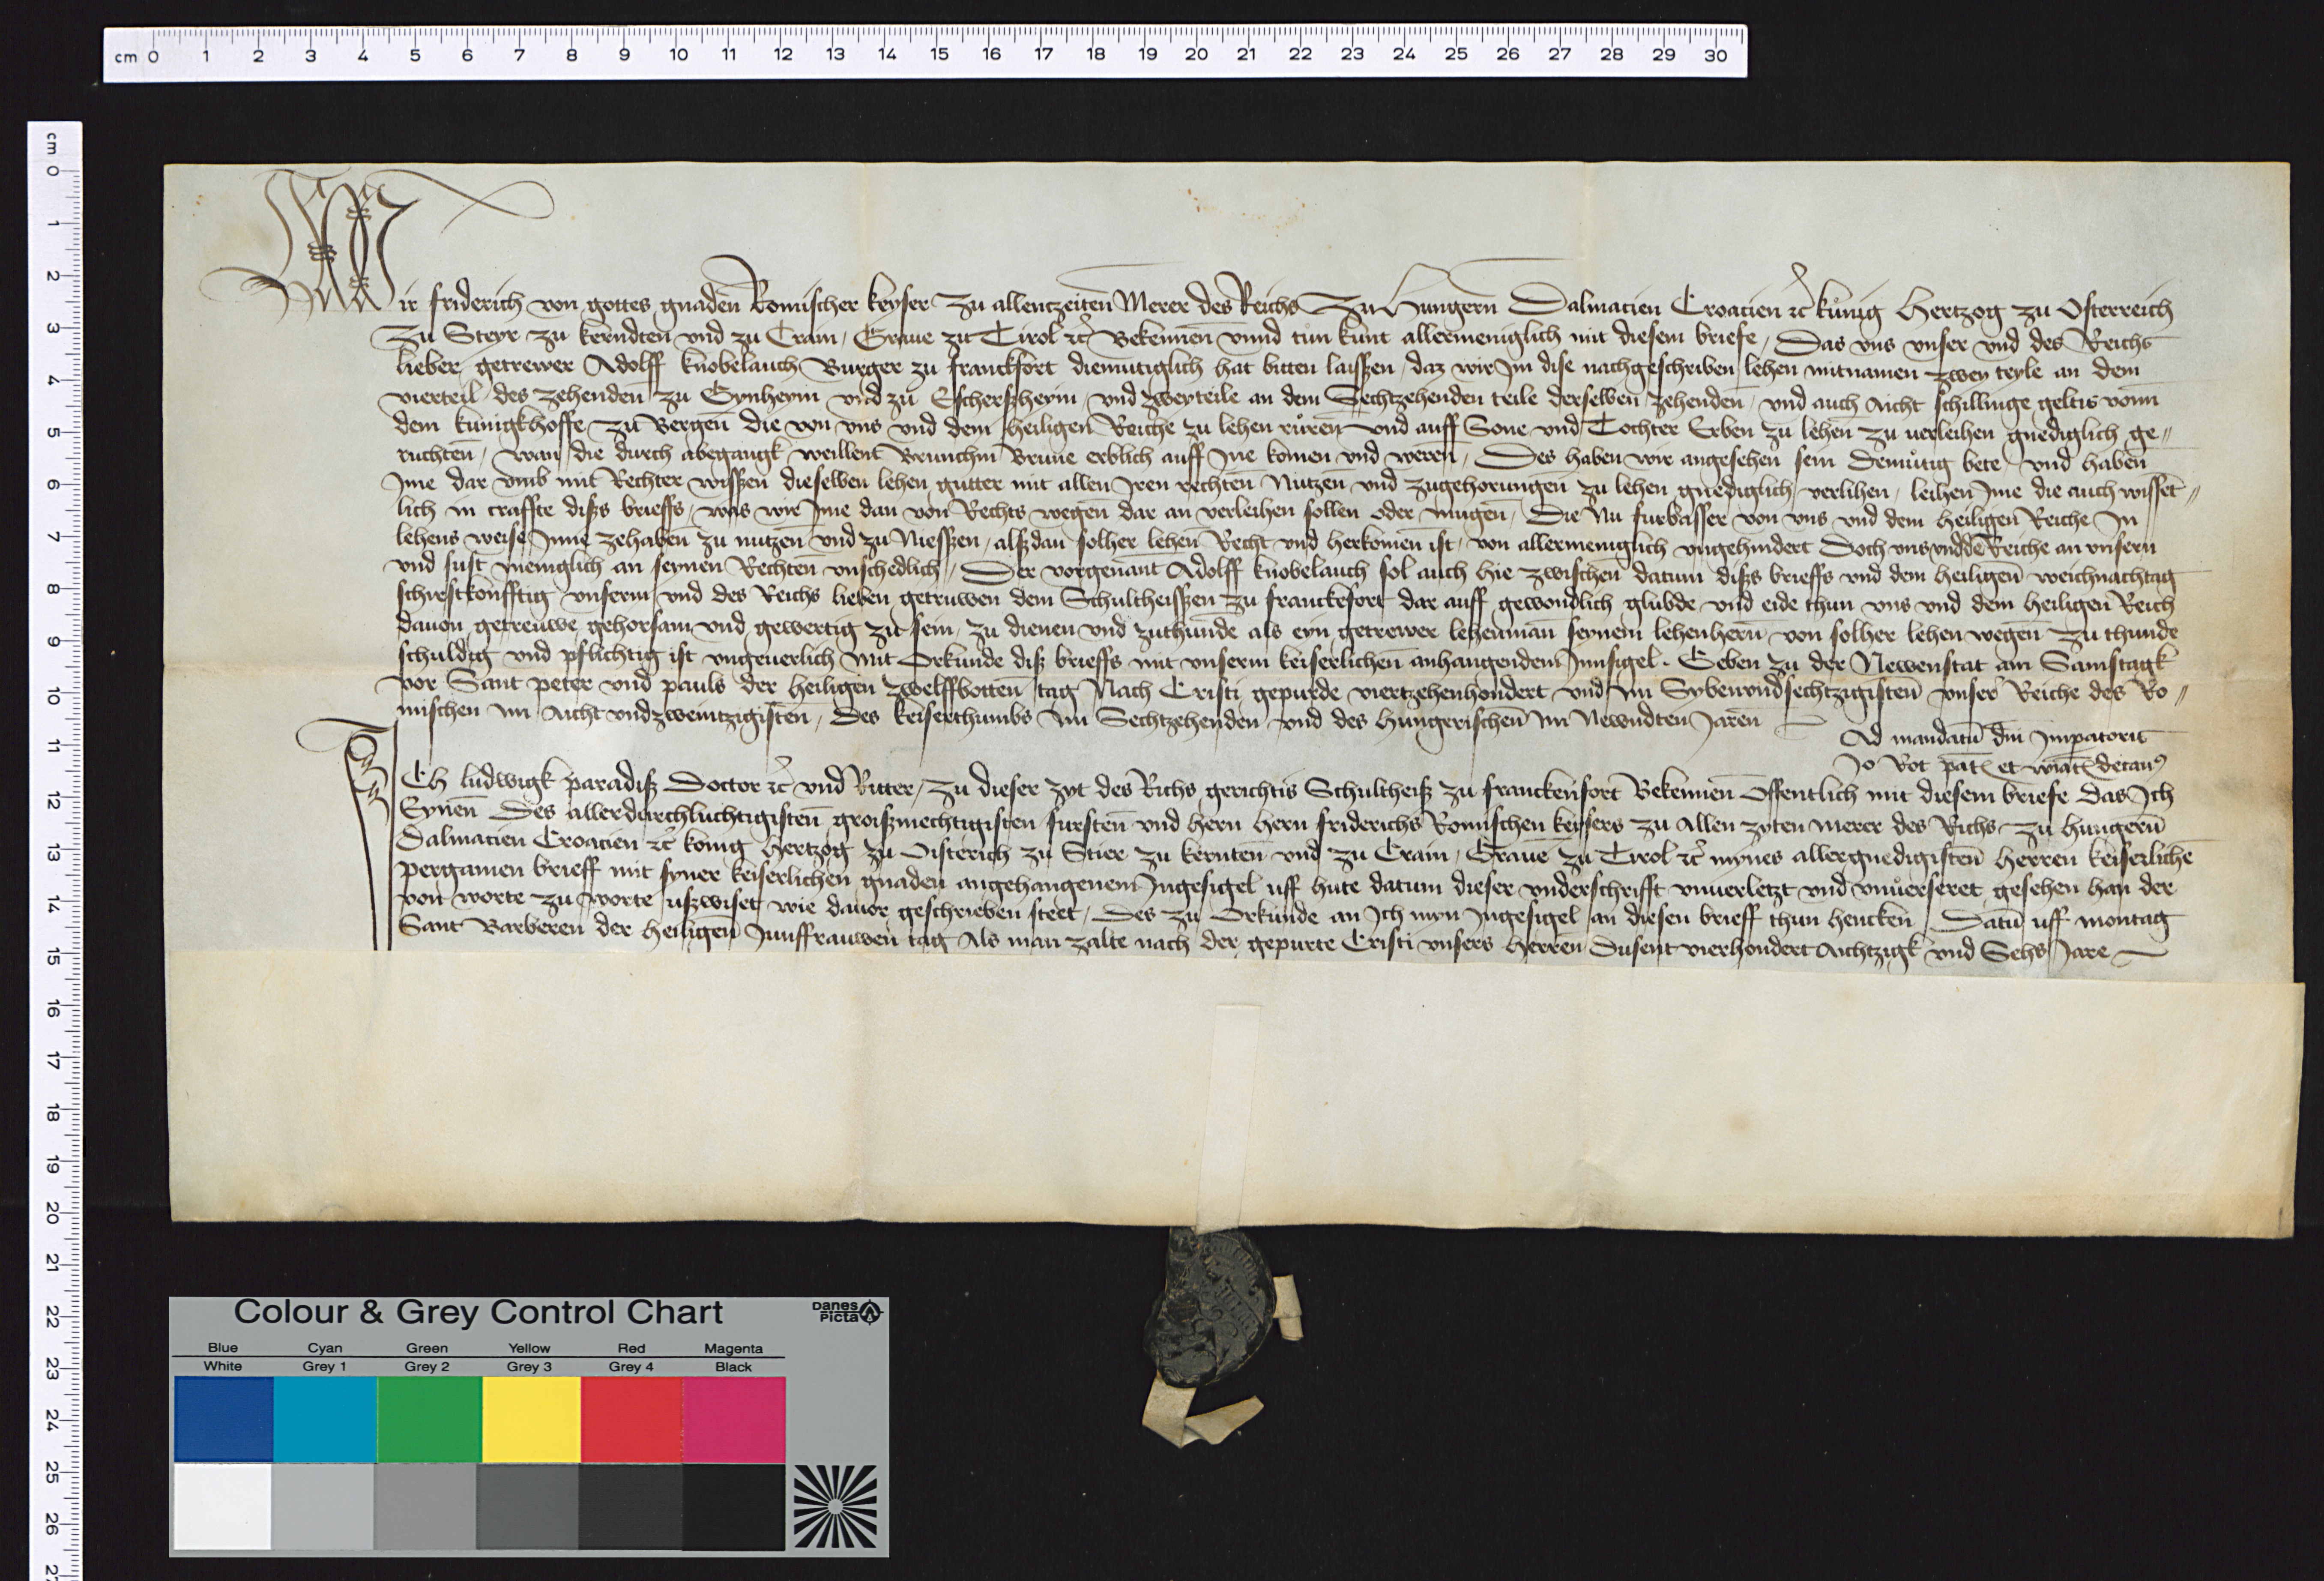 cm 0 1 2 3 4 5 6 7 8 9 10 11 12 13 14 15 16 17 18 19 20 21 22 23 24 25 26 27 28 29 30
cm 0 1 2 3 4 5 6 7 8 9 10 11 12 13 14 15 16 17 18 19 20 21 22 23 24 25 26 27
Wir friderich von gottes gnaden Romischer keyser Zu allentzeiten Merer des Reichs Zu Hungern Dalmacien Croacien ꝛc kůnig Hertzog zu Osterreich
Zu Steyr zu kerndten vnd zu Crain, Graue zu Tirol ꝛc Bekennen vnnd tun kunt allermeniglich mit diesem briefe, Das vns vnser vnd des Reichs
lieber getrewer Adolff knobelauch Burger zu franckfort diemutiglich hat bitten laissen, daz wir Im dise nachgeschriben lehen mitnamen zwey teyle an dem
vierteil des zehenden zu Gynheym vnd zu Eschersheym, vnd zweyteile an dem Sechtzehenden teile derselben zehenden, vnd auch Aicht schillinge geltis vonn
dem kunigkhoffe zu Bergen die von vns vnd dem heiligen Reiche zu lehen růren vnd auff Sone vnd Tochter Erben zu lehen zu uerleihen gnediglich ge„
ruchten, wan die durch abegangk weillent Brunchin Brune erblich auff Ine komen vnd weren, Des haben wir angesehen sein demůtig bete vnd haben
Ime dar vmb mit Rechter wissen dieselben lehen gutter mit allen Iren rechten Nutzen vnd zugehorungen zu lehen gnediglich verlihen, leihen Ime die auch wissēt„
lich in craffte diss brieffs, was wir Ime dan von Rechts wegen dar an verleihen sollen oder mugen, Die Nu furbasser von vns vnd dem heiligen Reiche In
lehens weise Inne zehaben zu nutzen vnd zu Niessen, alsdan solher lehen Recht vnd herkomen ist, von allermeniglich vngehindert Doch vns vnd dē Reiche an vnsern
vnd sust meniglich an seynen Rechten vnschedlich, Der vorgenant Adolff knobelauch sol auch hie zwischen datum diss brieffs vnd dem heiligen weichnachtag
schirstkonfftig vnserm vnd des Reichs lieben getruwen dem Schultheissen zu franckefort dar auff gewondlich glubde vnd eide thun vns vnd dem heiligen Reich
dauon getreuwe gehorsam vnd gewertig zu sein, zu dienen vnd zuthunde als eyn getrewer lehenman seynem lehenhern von solher lehen wegen zu thunde
schuldig vnd pflichtig ist vngeuerlich Mit Orkunde diß brieffs mit vnserm keiserlichen anhangendem Innsigel. Geben zu der Newenstat am Samstagk
vor Sant peter vnd pauls der heiligen zwelffbotten tag Nach Cristi gepurde viertzehenhondert vnd Im Sybenvndsechtzigisten vnser Reiche des Ro„
mischen im Aicht vndzweintzigisten, des keiserthumbs Im Sechtzehenden vnd des hungerischen Im Newndten Jaren
Ad mandatū dn̄i Imperatoris
Jo Rot pat et decan⁹
ICh ludwigk paradiß Doctor ꝛc vnd Ritter, zu dieser zyt des Richs gerichtis Schultheiß zu franckenfort Bekennen Offentlich mit diesem briefe Das Ich
Eynen Des allerdurchluchtigisten groißmechtigisten fursten vnd hern hern friderichs Romischen keysers zu Allen zyten merer des Richs zu hungern
dalmacien Croacien ꝛc konig Hertzog zu Oisterich zu Stier zu kernten vnd zu Crain, Graue zu Tirol ꝛc mynes allergnedigisten Herren keiserlichē
pergamen brieff mit syner keiserlichen gnaden angehangenem Ingesigel uff hute datum dieser vnderschrifft vnuerletzt vnd vnuerseret gesehen han der
von worte zu worte ußwiset wie dauor geschrieben steet, des zu Orkunde an Ich myn Ingesigel an diesen brieff thun hencken Datū uff montag
Sant Barberen der heiligen Junffrauwen tag Als man zalte nach der gepurte Cristi vnsers Herren Dusent vierhondert Aichtzigk vnd Sehs Jare
Colour & Grey Control Chart
Danes Picta
Blue Cyan Green Yellow Red Magenta
White Grey 1 Grey 2 Grey 3 Grey 4 Black